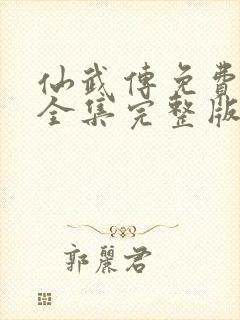 仙武傳免費
全集完整版
郭麗君